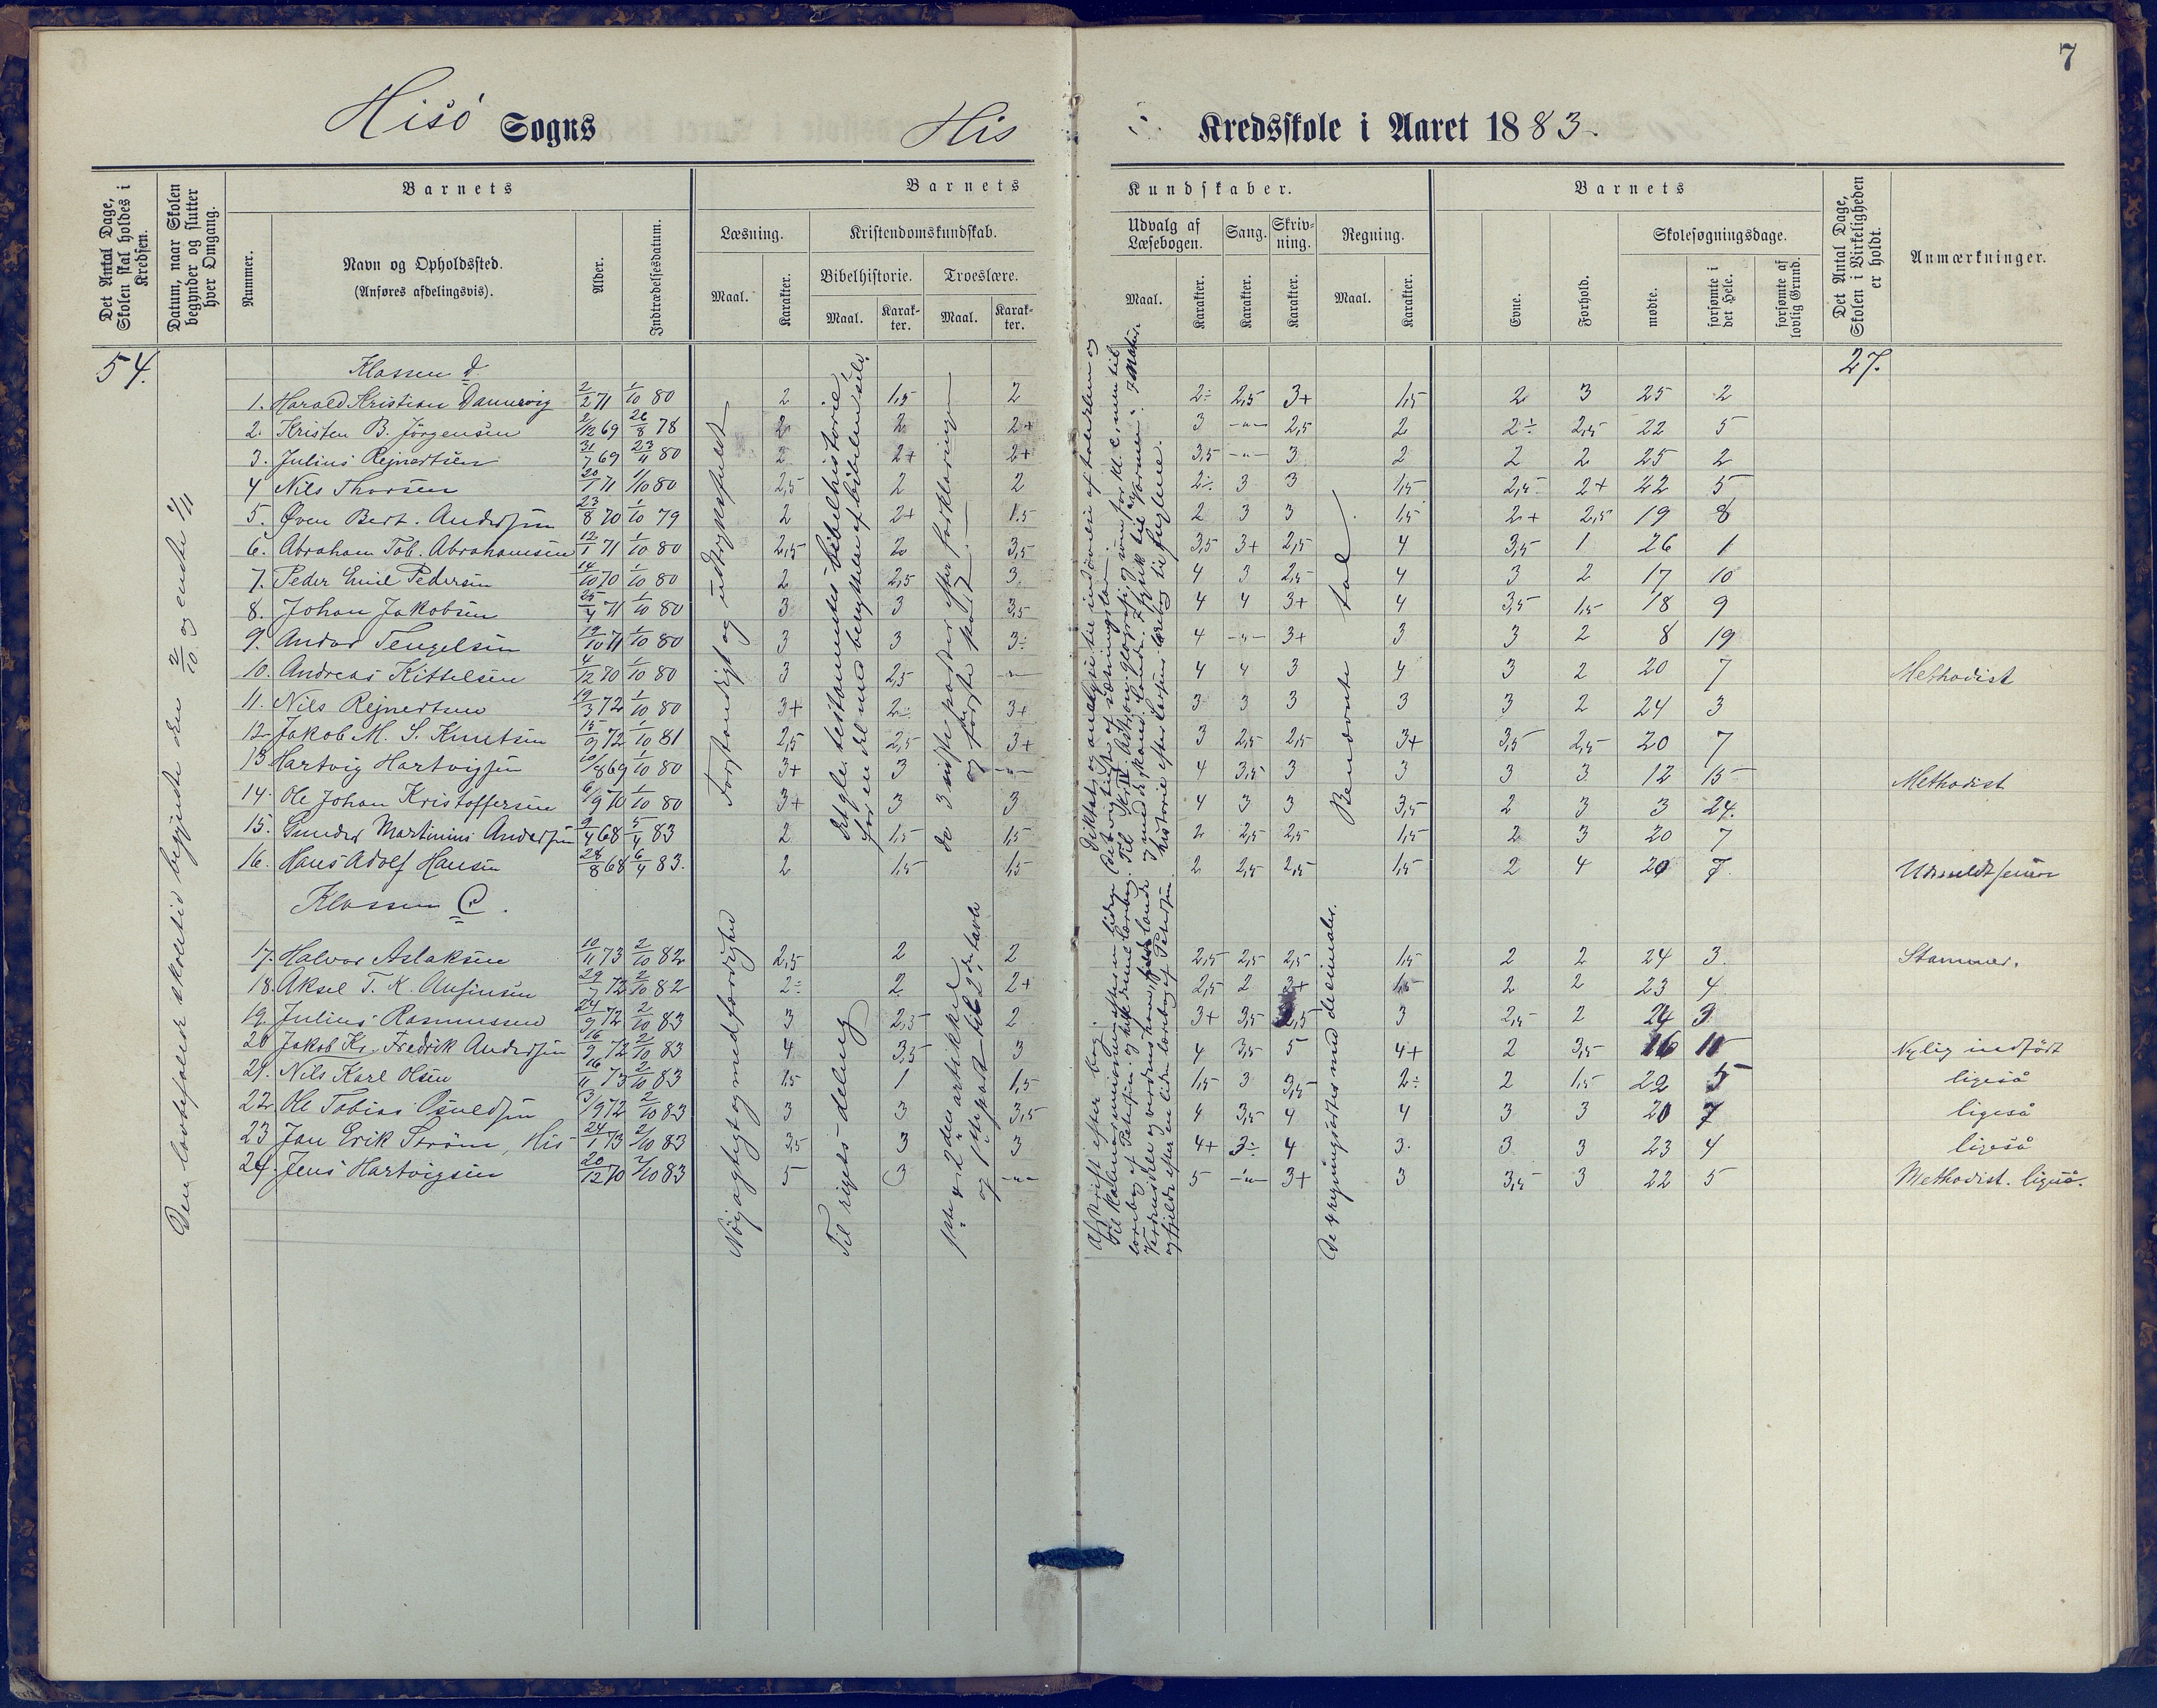 7
Hisö Sogns His Kredsskole i Aaret 1883.
Det Antal Dage, Skolen skal holdes i Kredsen.
Datum, naar Skolen begynder og slutter hver Omgang.
Barnets
Nummer.
Navn og Opholdssted.
(Anføres afdelingsvis).
Alder.
Indtrædelsesdatum.
Barnets Kundskaber.
Læsning.
Maal. Karakter.
Kristendomskundskab.
Bibelhistorie. Troeslære.
Maal. Karakter. Maal. Karakter.
Udvalg af Læsebogen.
Maal. Karakter.
Sang.
Karakter.
Skrivning.
Karakter.
Regning.
Maal. Karakter.
Barnets
Evne. Forhold.
Skolesøgningsdage.
mødte. forsømte i det Hele. forsømte af lovlig Grund.
Det Antal Dage, Skolen i Virkeligheden er holdt.
Anmærkninger.
54. 27.
Den lovbefalede skoletid begyndte den 2/10 og endte 1/11
Klassen d
1. Harald Kristian Dannevig 2/2 71 1/10 80 2 1,5 2 2÷ 2,5 3+ 1,5 2 3 25 2
2. Kristen B. Jörgensen 2/12 69 26/8 78 2 2 2+ 3 -"- 2,5 2 2÷ 2,5 22 5
3. Julius Rejnertsen 31/7 69 23/11 80 2 2+ 2+ 3,5 -"- 3 2 2 2 25 2
4 Nils Thorsen 20/1 71 1/10 80 2,5 2 2 2÷ 3 3 1,5 2,5 2+ 22 5
5. Öven Bert. Andersen 23/8 70 1/10 79 2 2+ 1.5 2 3 3 1,5 2+ 2,5 19 8
6. Abraham Tob. Abrahamsen 12/1 71 1/10 80 2,5 2 3,5 3,5 3+ 2,5 4 3,5 1 26 1
7. Peder Emil Pedersen 14/10 70 1/10 80 2 2,5 3. 4 3 2,5 4 3 2 17 10
8. Johan Jakobsen 25/4 71 1/10 80 3 3 3,5 4 4 3+ 4 3,5 1,5 18 9
9. Andor Tengelsen 19/10 71 1/10 80 3 3 3÷ 4 -"- 3+ 3 3 2 8 19
10. Andreas Kittelsen 4/12 70 1/10 80 3 2,5 -"- 4 4 3 4 3 2 20 7 Methodist
11. Nils Rejnertsen 19/3 72 1/10 80 3+ 2÷ 3+ 3 3 3 3 3 2 24 3
12. Jakob M. S. Knutsen 15/9 72 1/10 81 2,5 2,5 3+ 3 2,5 2,5 3+ 3,5 2,5 20 7
13 Hartvig Hartvigsen 10/8 69 1/10 80 3+ 3 -"- 4 3,5 3 3 3 3 12 15 Methodist
14. Ole Johan Kristoffersen 6/9 70 1/10 80 3+ 3 3 4 3 3 3,5 2 3 3 24.
15. Gunder Martinius Andersen 9/4 68 5/4 83 2 1,5 1,5 2 2,5 2,5 1,5 2 3 20 7
16. Hans Adolf Hansen 28/8 68 6/4 83. 2 1,5 1,5 2 2,5 2,5 1,5 2 4 20 7.
Klassen C.
17. Halvor Aslaksen 10/11 73 2/10 82 2,5 2 2 2,5 2,5 2,5 1,5 2 2 24 3. Stammer.
18. Aksel T. K. Ansinsen 29/7 72 2/10 82 2÷ 2 2+ 2,5 2 3+ 1,5 2 2 23 4
19. Julius Rasmussen 24/9 72 2/10 83 3 2,5 2 3+ 3,5 2,5 3 2,5 2 24 3
20 Jakob Kr. Fredrik Andersen 16/9 72 2/10 83 4 3,5 3 4 3,5 5 4+ 2 3,5 16 11 Nylig indfört
21. Nils Karl Olsen 16/11 73 2/10 83 1,5 1 1,5 1,5 3 3,5 2÷ 2 1,5 22 5 ligeså
22. Ole Tobias Osuldsen 3/9 72 2/10 83 3 3 3,5 4 3,5 4 4 3 3 20 7 ligeså
23 Jan Erik Ström, His 24/1 73 2/10 83 3,5 3 3 4+ 3÷ 4 3. 3 3 23 4 ligeså
24. Jens Hartvigsen 20/12 70 2/10 83 5 3 -"- 5 -"- 3+ 3 3,5 3 22 5 Methodist. ligeså.
Forstandigt og udtryksfuldt
Det gle. testamentes bibelhistorie,
for en del med benyttelse af bibelen selv.
de 3 sidste parter efter forklaringen
og første part.
Benævnte tal
Nöjagtigt og med færdighed
Til rigets deling
1ste & 2den artikkel
og 1ste part til 2den tavle
Afskrift efter bog.
De 4 regningsarter med decimaler.